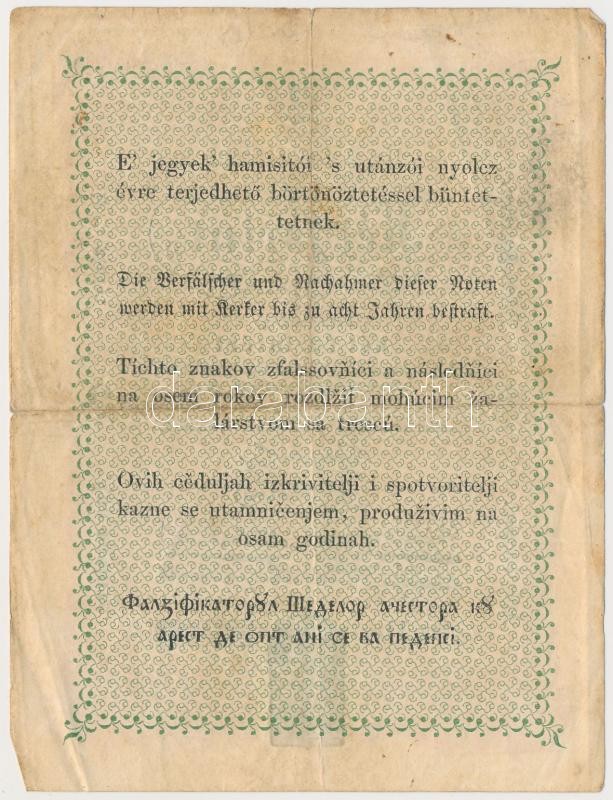 E' jegyek' hamisitói 's utánzói nyolcz
évre terjedhető börtönöztetéssel büntet-
tetnek.
Die Verfälscher und Nachahmer dieser Noten
werden mit Kerker bis zu acht Jahren bestraft.
Tíchto znakov zfalssovňíci a následňíci
na osem rokov rozdlžiť mohúcim ža-
lárstvom sa trescú.
Ovih cěduljah izkrivitelji i spotvoritelji
kazne se utamničenjem, produživim na
osam godinah.
Фалзіфікаторꙋл Шеделор ачестора кꙋ
арест де опт ані се ва педепсі.
darabanth